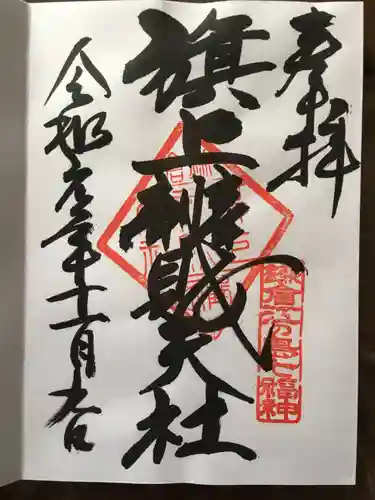 奉拝
旗上辨財天社
令和元年十一月九日
鎌倉江の島七福神